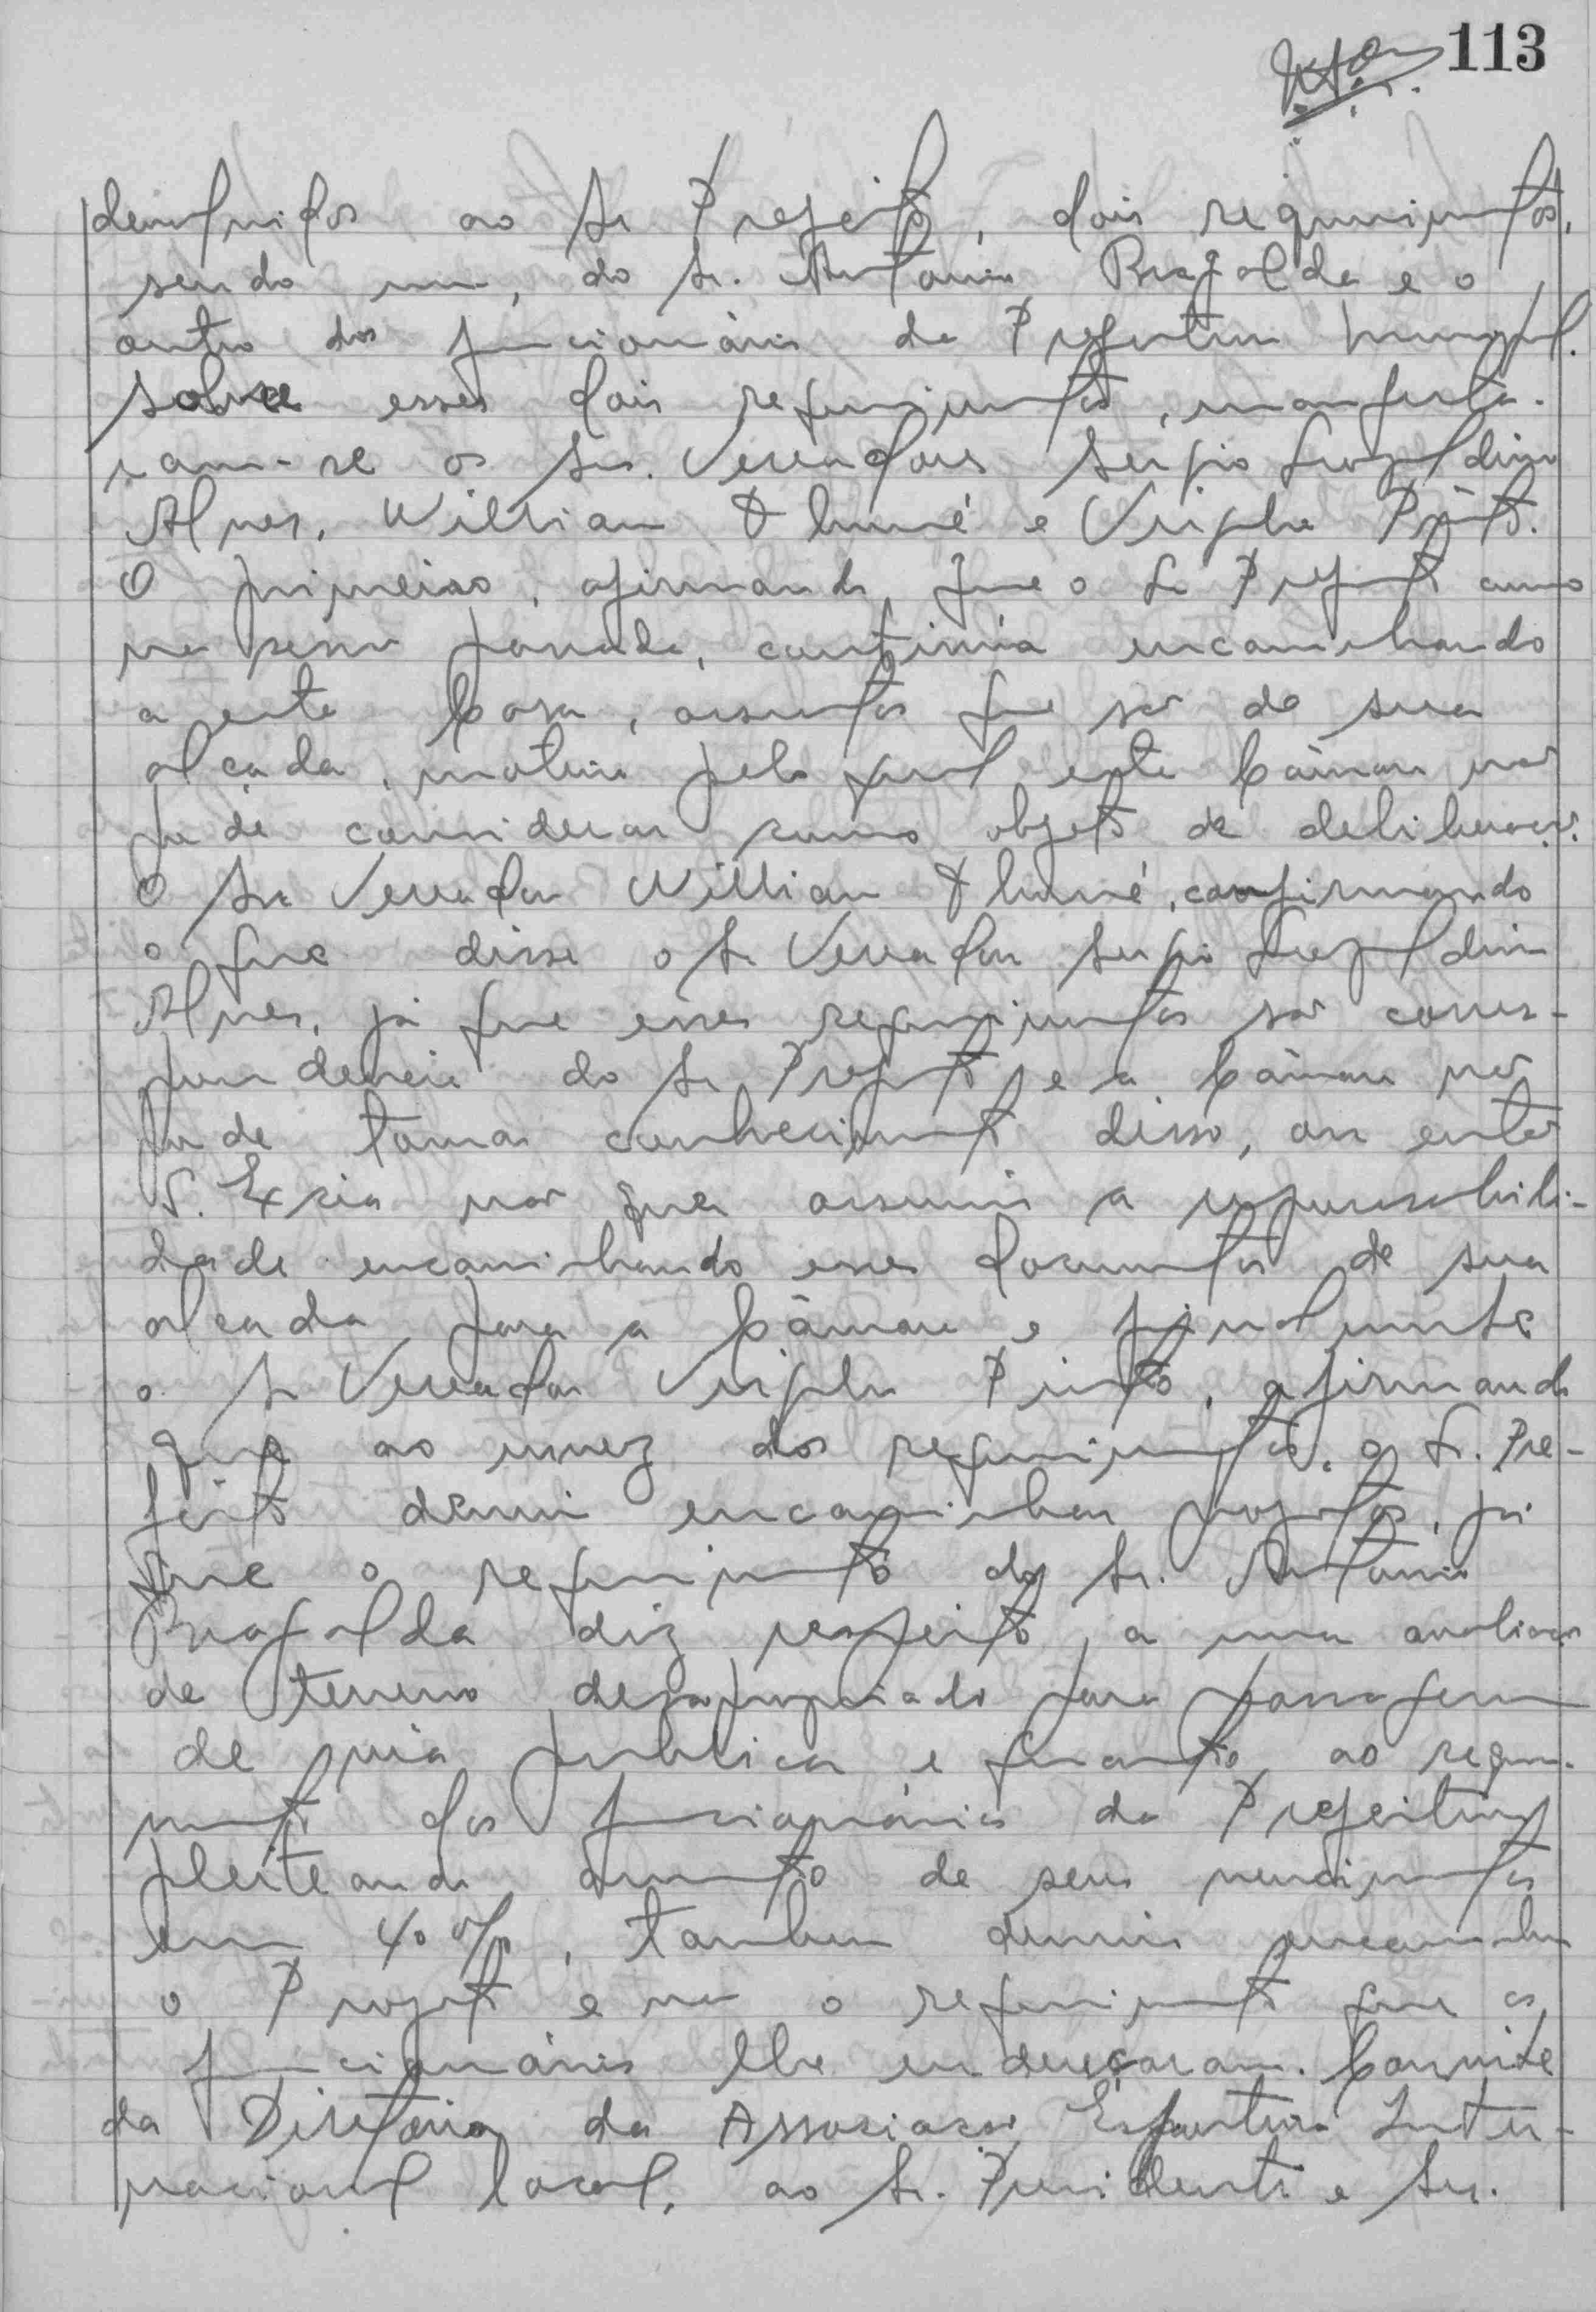 113
ao Sr Prefeito, dois requerimentos,
sendo um, do Sr. Antonio Bragalda e o
outro dos funcionários da Prefeitura Municipal.
Sobre esses dois requerimentos, manifesta-
ram-se os Srs. Vereadores Sergio
Alves, Willian Thumé e Virgilio Pinto.
O primeiro, afirmando que o Sr Prefeito como
na passada, continúa encaminhando
a esta Casa, assuntos que são de sua
alçada, motivo pelo qual esta Câmara não
pode considerar como objeto de deliberação.
O Sr Vereador Willian Thumé, confirmando
o que disse o Sr Vereador Sergio
Alves, já que esses requerimentos são corres-
pondencia do Sr Prefeito e a Câmara não
pode tomar conhecimento disso, ou então
S. Excia não quer assumir a responsabili-
dade encaminhando esses documentos de sua
alçada para a Câmara e finalmente
o Sr Vereador Virgilio Pinto, afirmando
que ao invez dos requerimentos, o Sr. Pre-
feito devia encaminhar projetos, já
que o requerimento do Sr. Antonio
Bragalda diz respeito, a uma avaliação
de terreno desapropriado para passagem
de via publica e quanto ao requeri-
mento dos funcionários da Prefeitura
pleiteando aumento de seus vencimentos
em 40%, tambem devia encaminhar
o Projeto e não o requerimento que os
funcionários lhe endereçaram. Convite
da Diretoria da Associação Esportiva Inter-
nacional local, ao Sr. Presidente e Srs.